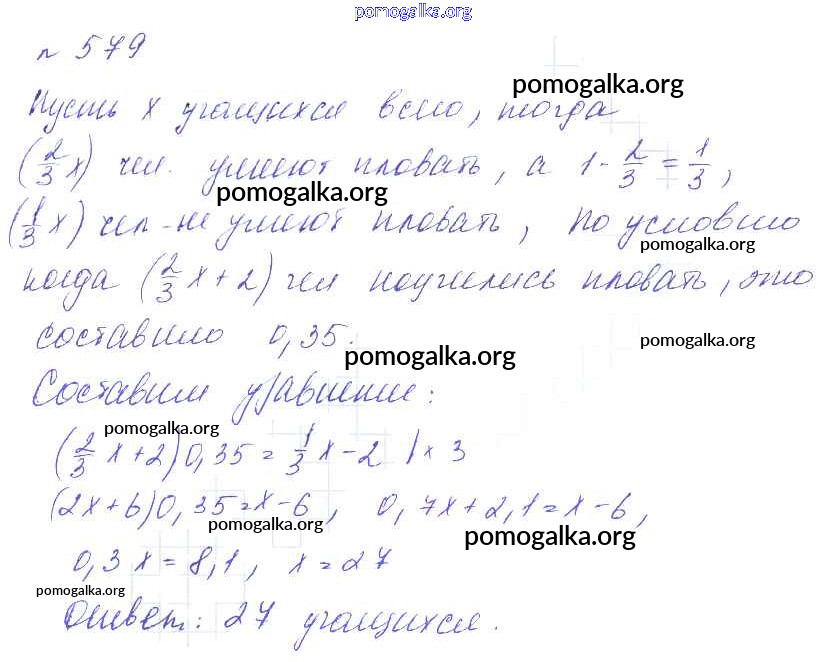 pomogalka.org
№ 579
pomogalka.org
Пусть x учащихся всего, тогда
(2/3 x) чел. умеют плавать, а 1 - 2/3 = 1/3,
pomogalka.org
(1/3 x) чел - не умеют плавать, по условию
pomogalka.org
когда (2/3 x + 2) чел научились плавать, это
составило 0,35.
pomogalka.org
pomogalka.org
Составим уравнение:
pomogalka.org
(2/3 x + 2) 0,35 = 1/3 x - 2 | × 3
(2x + 6) 0,35 = x - 6, 0,7x + 2,1 = x - 6,
pomogalka.org
pomogalka.org
0,3x = 8,1, x = 27
pomogalka.org
Ответ: 27 учащихся.